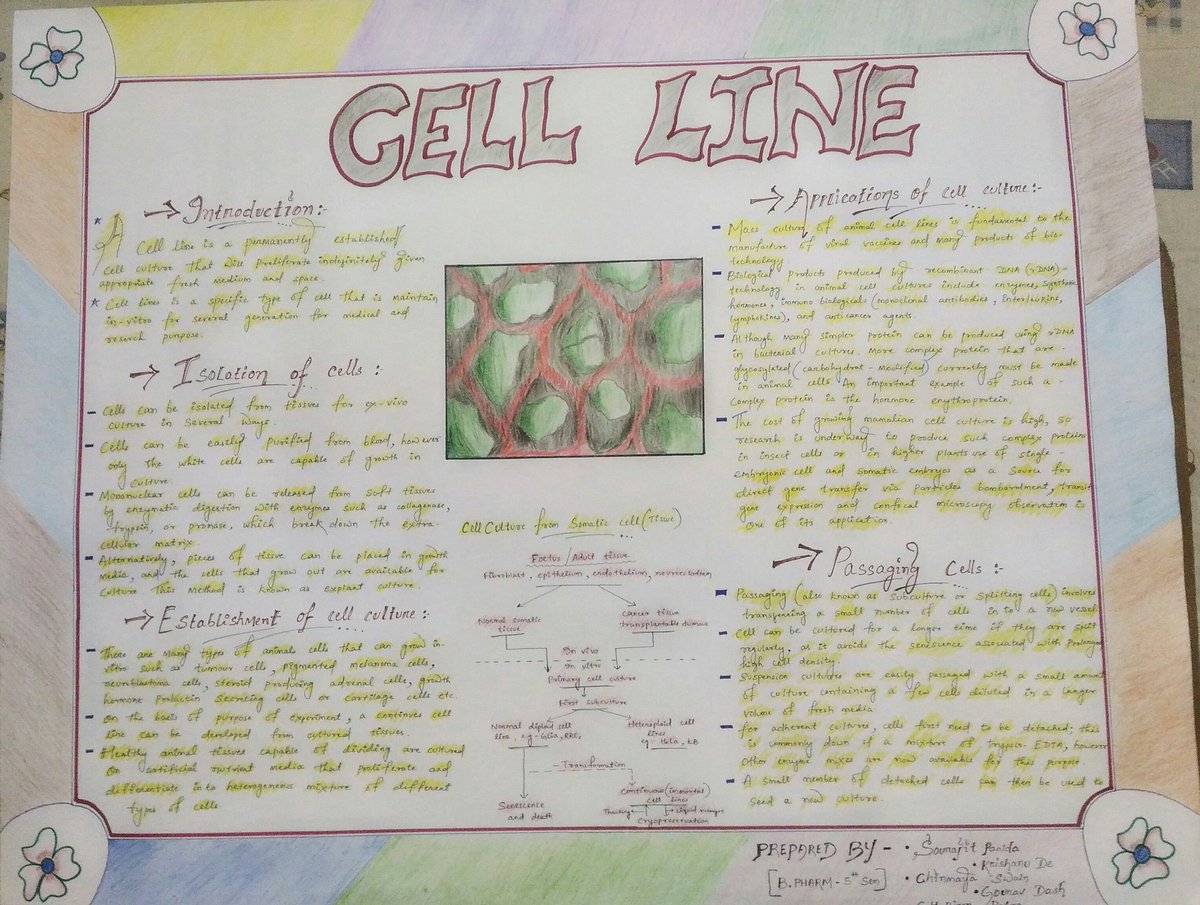 CELL LINE
→ Introduction :-
* A Cell line is a permanently established
cell culture that will proliferate indefinitely given
appropriate fresh medium and space.
* Cell lines is a specific type of cell that is maintain
in-vitro for several generation for medical and
reserch purpose.
→ Isolation of cells :
- Cells can be isolated from tissues for ex-vivo
culture in several ways.
- Cells can be easily purified from blood, however
only the white cells are capable of growth in
culture.
- Mononuclear cells can be released from soft tissues
by enzymatic digestion with enzymes such as collagenase,
trypsin, or pronase, which break down the extra-
cellular matrix.
- Alternatively, pieces of tissue can be placed in growth
media, and the cells that grow out are available for
culture This Method is known as explant culture.
→ Establishment of cell culture :-
- There are many types of animal cells that can grow in-
vitro such as tumour cells, pigmented melanuma cells,
neuroblastoma cells, steroid producing adrenal cells, growth
hormone Prolactin Secreting cells or cartilage cells etc.
- on the basis of purpose of experiment, a continues cell
line can be developed from cultured tissues.
- Healthy animal tissues capable of dividing are cultured
on artificial nutrient media that proliferate and
differentiate in to heterogeneous mixture of different
types of cells
Cell Culture from Somatic cell (Tissue)
Foetus / Adult tissue
Fibroblast, epithelium, endothelium,
Normal somatic
tissue
Cancer tissue
transplantable tumour
In vivo
In vitro
Primary cell culture
First subculture
Normal diploid cell
line, e.g - Glia,
Heteroploid cell
lines
eg - Hela, KB
- Transformation
Senescence
and death
Continuous (immortal)
cell lines
Thawing
Cryopreservation
→ Applications of cell culture :-
- Mass culture of animal cell lines is fundamental to the
manufacture of viral vaccines and many products of bio-
technology.
- Biological protucts produced by recombinant DNA (rDNA)-
technology in animal cell cultures include enzymes, synthetic
hormones, immuno biologicals (monoclonal antibodies, Interleukins,
lymphokines), and anticancer agents.
- Although many simpler protein can be produced using rDNA
in bacterial cultures. More complex protein that are -
glycosylated (carbohydrat - modified) currently must be made
in animal cells. An important example of such a -
complex protein is the hormone erythroprotein.
- The cost of growing mamalian cell culture is high, so
research is underway to produce such complex proteins
in insect cells or in higher plants use of single-
embryonic cell and somatic embryos as a source for
direct gene transfer via particles bombordment, transit
gene expression and confocal microscopy observation is
one of its application.
→ Passaging Cells :-
- Passaging (also known as subculture or splitting cells) involves
transfering a small number of cells in to a new vessel
Cell can be cultured for a longer time if they are split
regularly, as it avoids the senescence associated with prolonged
high cell density.
- Suspension cultures are easily passaged with a small amount
of culture containing a few cells diluted in a larger
volume of fresh media
- for adherent cultures, cells first need to be detached; this
is commonly down if a mixture of trypsin-EDTA, however
other enzyme mixes are now available for this purpose
- A small member of detached cells can then be used to
seed a new culture.
PREPARED BY - • Sourajit Panda
[B.PHARM - 5th Sem]
• Krishanu De
• Chinmaya Swain
• Gourav Dash